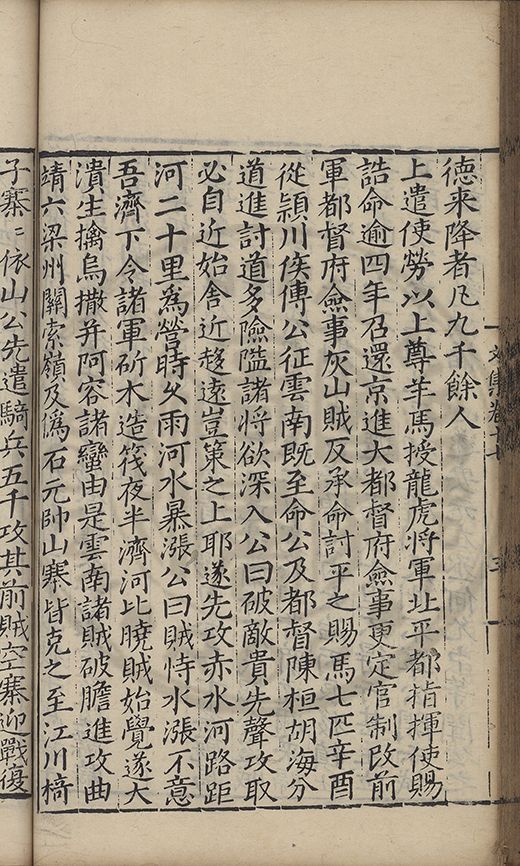 德来降者凡九千餘人
上遣使勞以上尊羊馬授龍虎将軍北平都指揮使賜
誥命逾四年召還京進大都督府僉事更定官制改前
軍都督府僉事灰山賊反承命討平之賜馬七匹辛酉
從頴川侯傅公征雲南既至命公及都督陳桓胡海分
道進討道多險隘諸将欲深入公曰破敵貴先聲攻取
必自近始舎近趍遠豈策之上耶遂先攻赤水河路距
河二十里爲營時久雨河水暴漲公曰賊恃水漲不意
吾濟下令諸軍斫木造筏夜半濟河比曉賊始覺遂大
潰生擒烏撒并阿容諸蠻由是雲南諸賊破膽進攻曲
靖六梁州關索嶺及偽石元帥山寨皆克之至江川㯋
子寨〻依山公先遣騎兵五千攻其前賊空寨迎戰復
文集卷十七
三